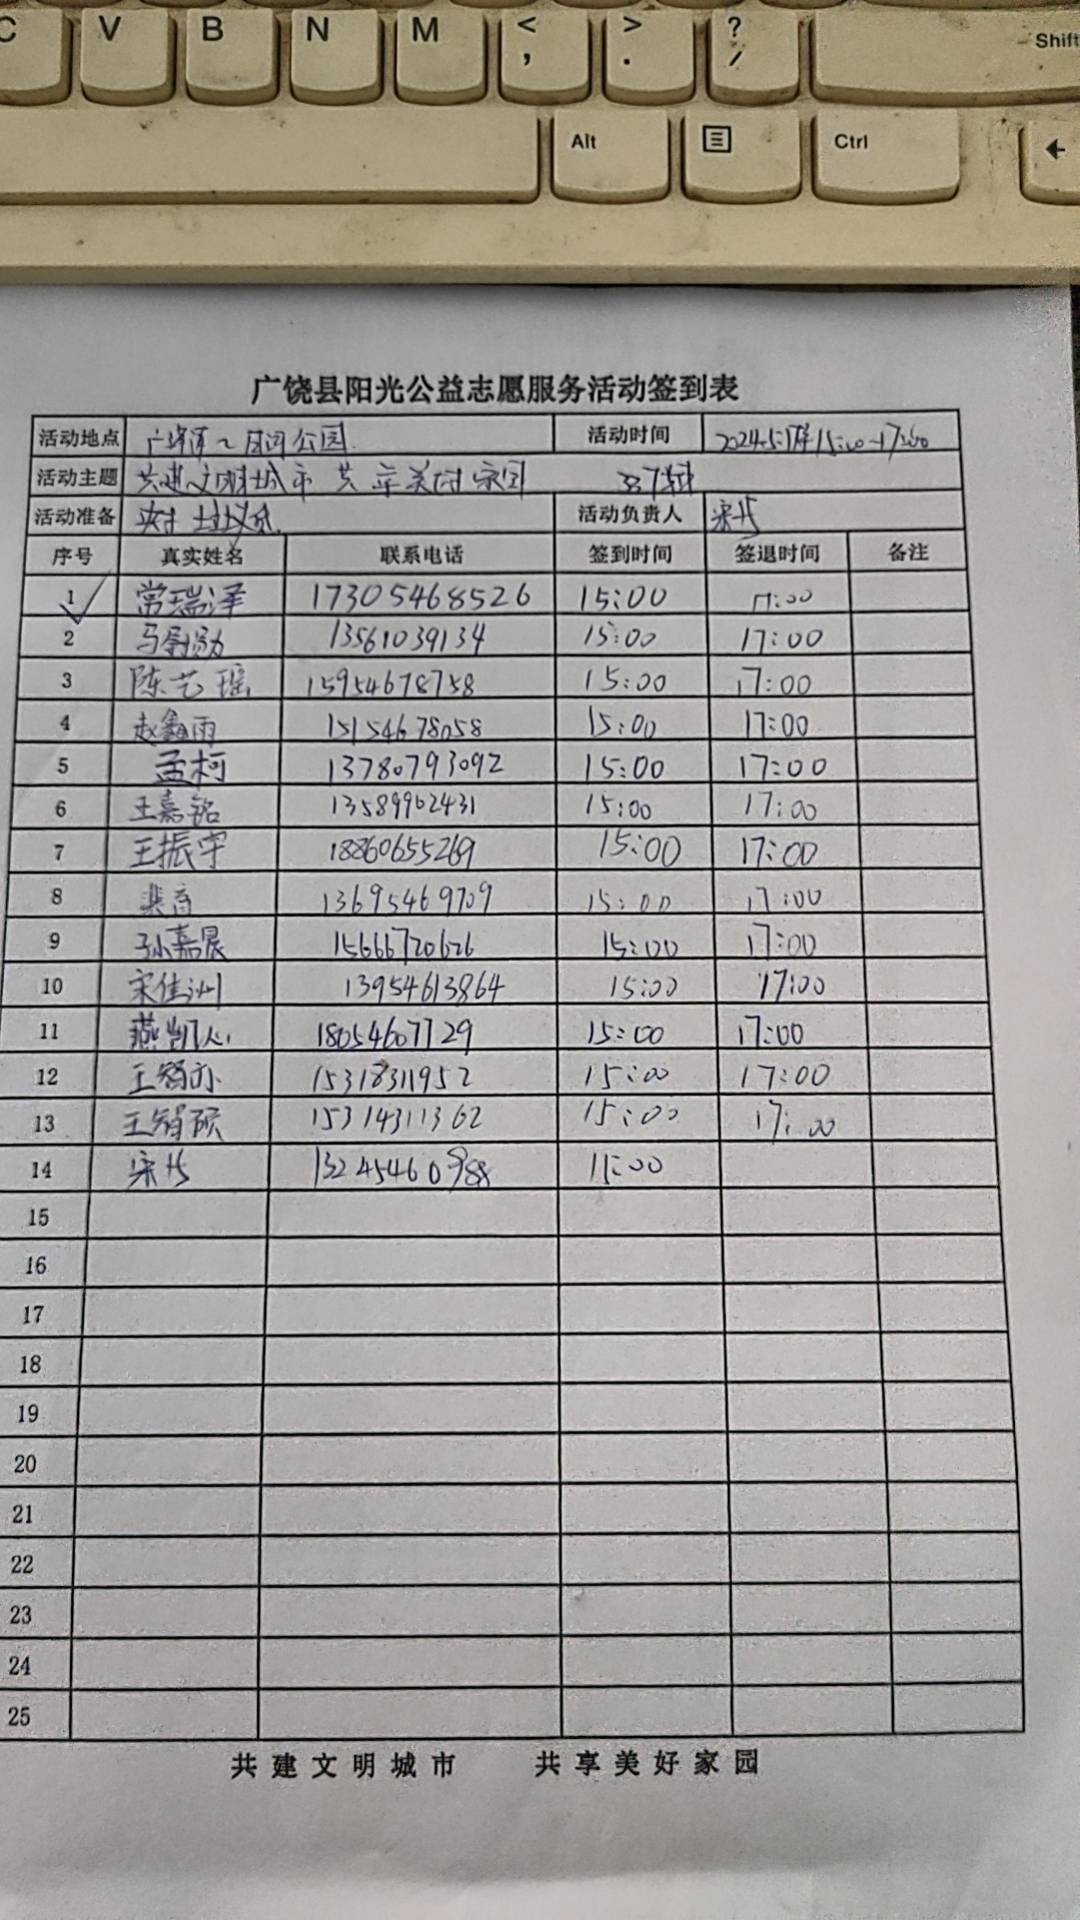 C V B N M < , > . ? / Shift
Alt Ctrl ←
广饶县阳光公益志愿服务活动签到表
活动地点 公园 活动时间 15:00-17:00
活动主题 共建文明城市 共享美好家园
活动准备 活动负责人
序号 真实姓名 联系电话 签到时间 签退时间 备注
1 常瑞泽 17305468526 15:00 17:00
2 13561039134 15:00 17:00
3 陈艺瑶 15954678758 15:00 17:00
4 赵鑫雨 15154678058 15:00 17:00
5 孟柯 13780793092 15:00 17:00
6 王嘉铭 13589902431 15:00 17:00
7 王振宇 18860655269 15:00 17:00
8 13695469709 15:00 17:00
9 孙嘉晨 15666720626 15:00 17:00
10 宋佳 13954613864 15:00 17:00
11 燕凯 18054607729 15:00 17:00
12 王智 15318311952 15:00 17:00
13 王智硕 15314311362 15:00 17:00
14 13245460988
15
16
17
18
19
20
21
22
23
24
25
共建文明城市 共享美好家园